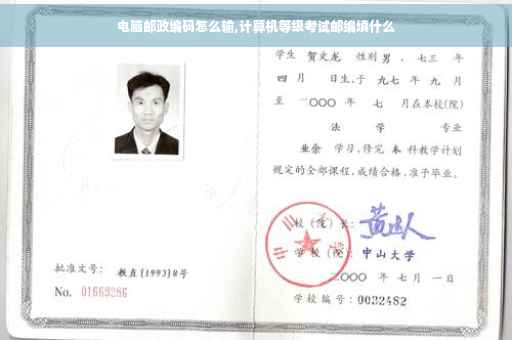 电脑邮政编码怎么输,计算机等级考试邮编填什么
学生 贺文龙 性别 男 、七三 年
四 月 日生,于 九七 年 九 月
至 二〇〇〇 年 七 月在本校(院)
法 学 专业
业余 学习,修完 本 科教学计划
规定的全部课程,成绩合格,准予毕业。
校(院)长:
学校(院): 中山大学
二〇〇〇 年 七 月 一 日
学校编号: 0032482
批准文号: 教直(1993)8号
No. 01669286